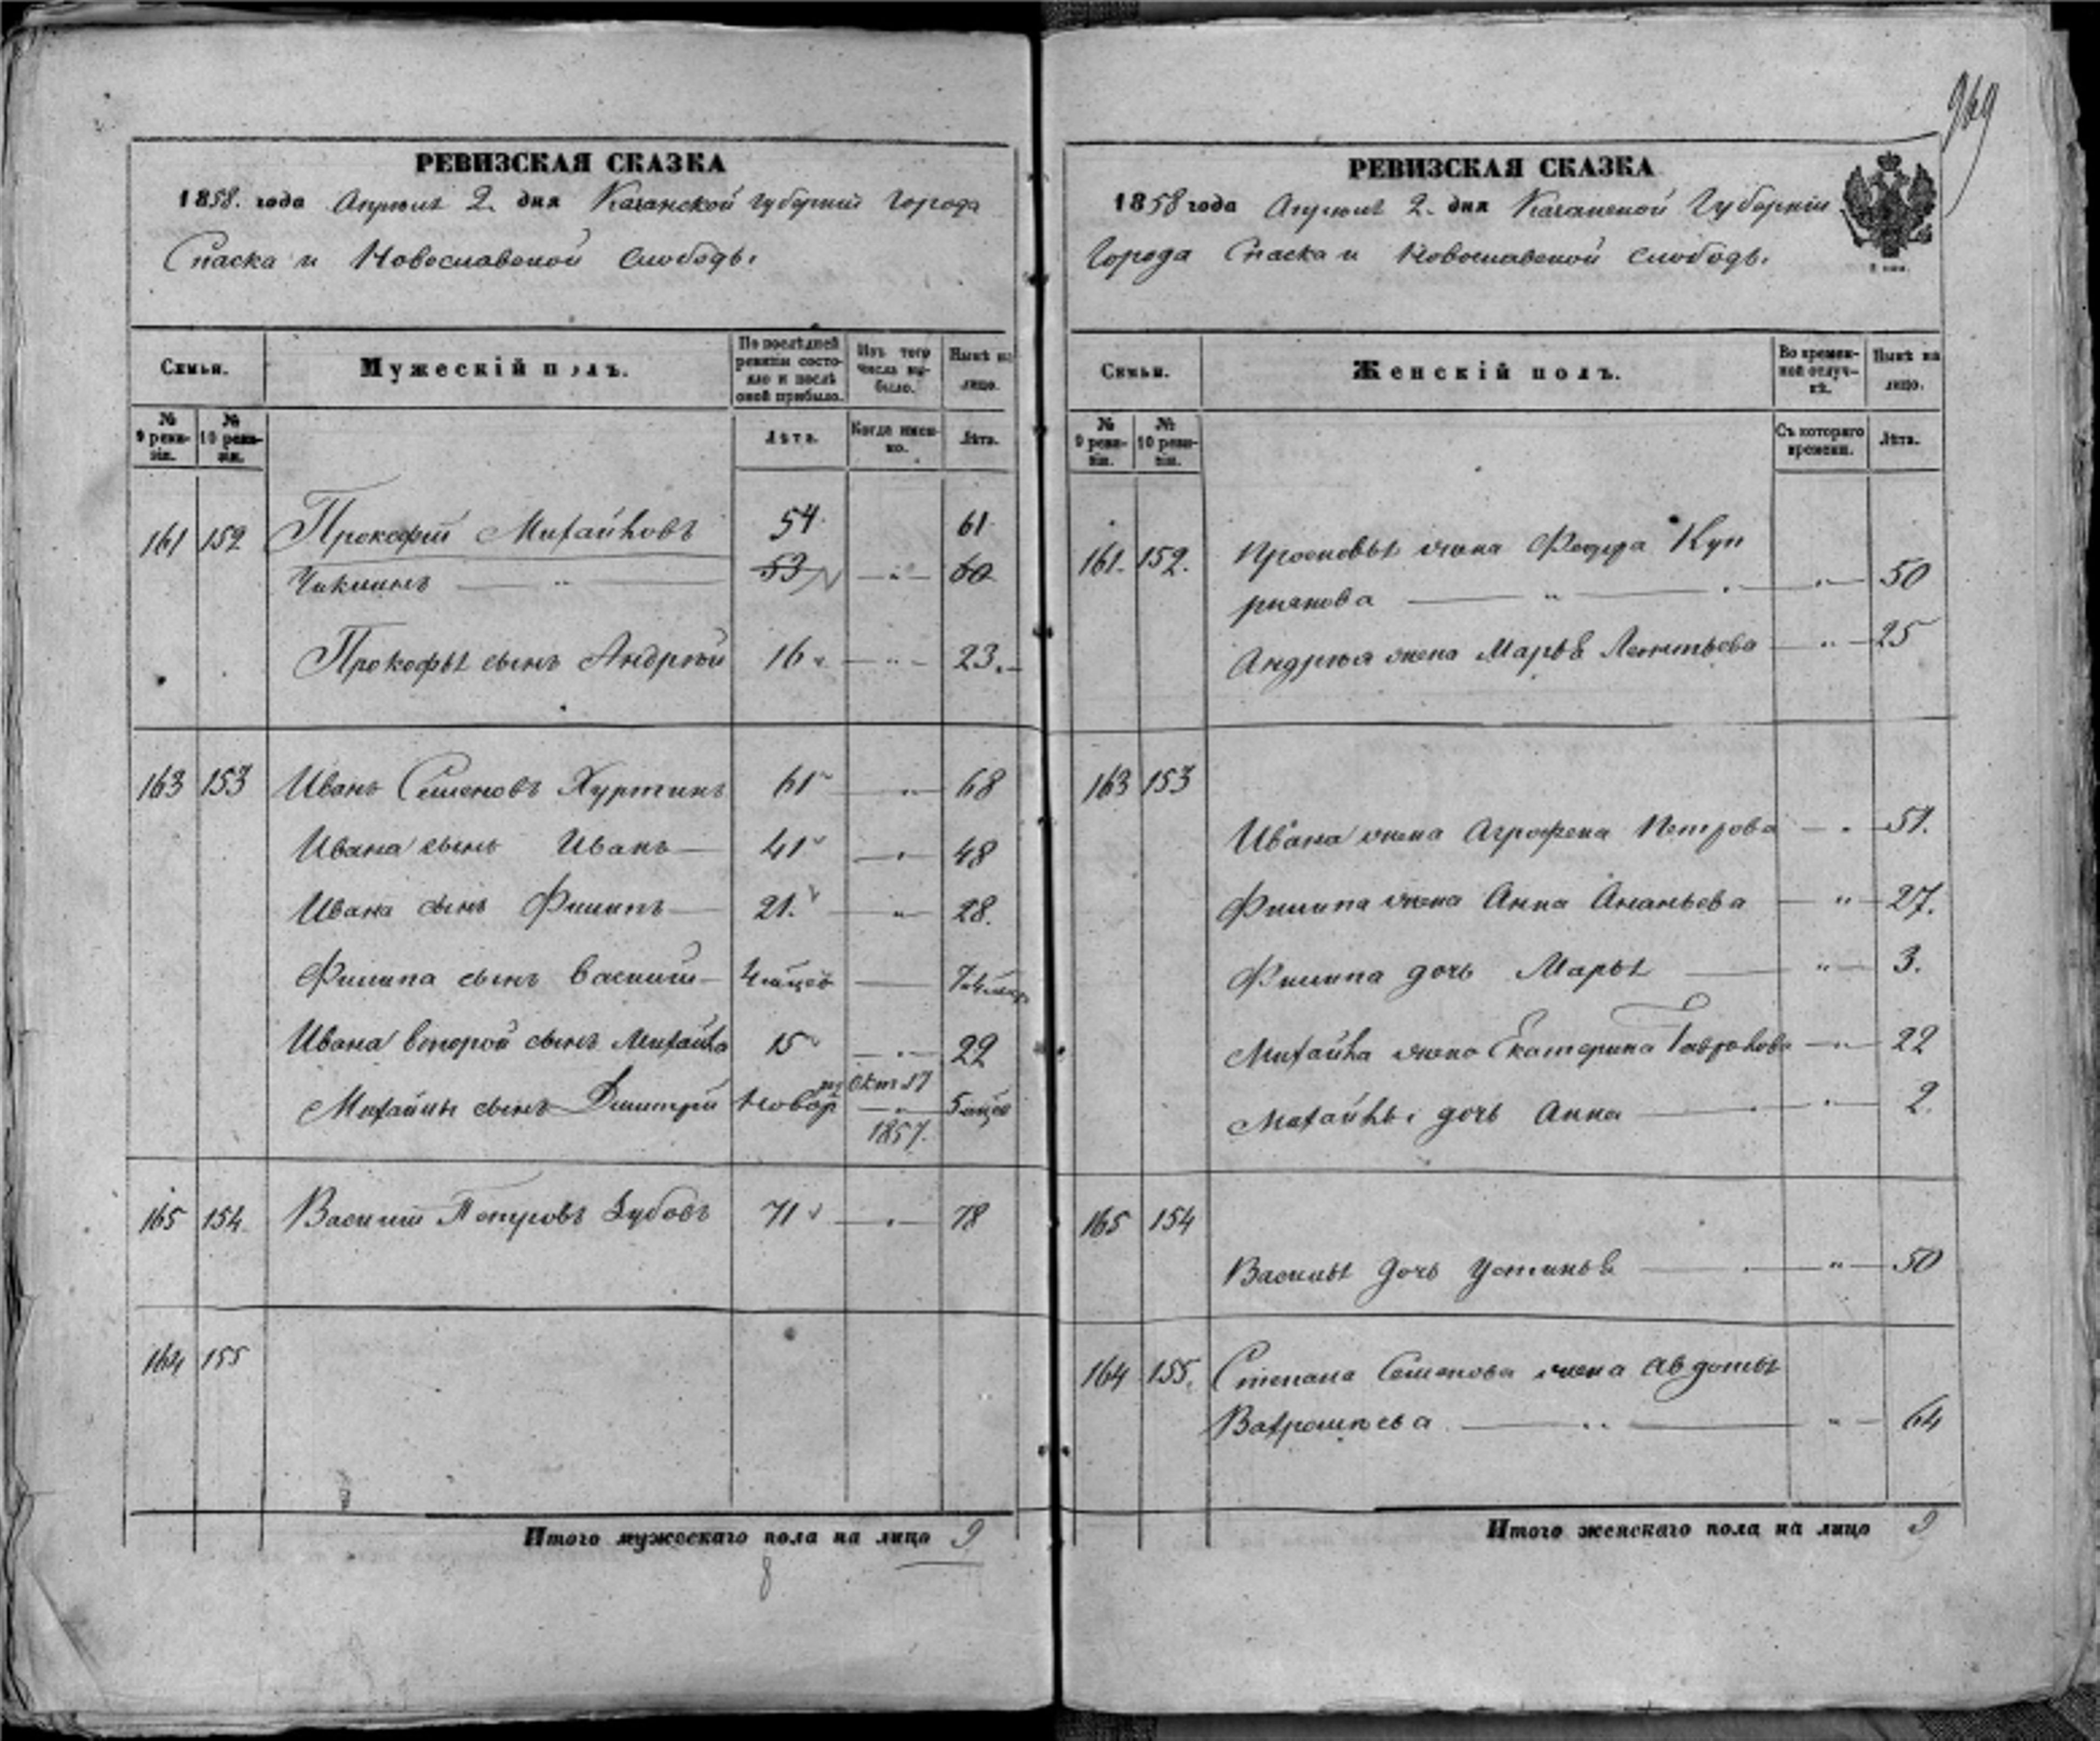 969
РЕВИЗСКАЯ СКАЗКА
1858. года Апреля 2 дня Казанской губернии Города
Спаска и Новоспавской слободы.
Семьи. Мужескій полъ. По послѣдней ревизіи состояло и послѣ оной прибыло. Изъ того числа выбыло. Нынѣ на лицо.
№ 9 ревизіи. № 10 ревизіи. Лѣта. Когда именно. Лѣта.
161 152 Прокофій Михайловъ 54 61
53 60
Прокофья сынъ Андрей 16 23.
163 153 Иванъ Семеновъ Хуртинъ 61 68
Ивана сынъ Иванъ 41 48
Ивана сынъ Филипъ 21. 28.
Филипа сынъ Василий
Ивана второй сынъ Михайла 15 22
Михайлы сынъ Дмитрий Новор Окт 17 1857.
165 154 Василий Петровъ Зубовъ 71 78
164 155
Итого мужескаго пола на лицо 9
8
РЕВИЗСКАЯ СКАЗКА
1858 года Апреля 2. дня Казанской Губерніи
Города Спаска и Новоспавской слободы.
Семьи. Женскій полъ. Во временной отлучкѣ. Нынѣ на лицо.
№ 9 ревизіи. № 10 ревизіи. Съ котораго времени. Лѣта.
161. 152. Прокофья жена Федора Куп
риянова 50
Андрея жена Марья Леонтьева 25
163 153
Ивана жена Аграфена Петрова 51.
Филипа жена Анна Ананьева 27.
Филипа дочь Марья 3.
Михайла жена Екатерина Гаврилова 22
Михайлы дочь Анна 2.
165 154
Василья дочь Устинья 50
164 155. Степана Семенова жена Авдотья
64
Итого женскаго пола на лицо 9